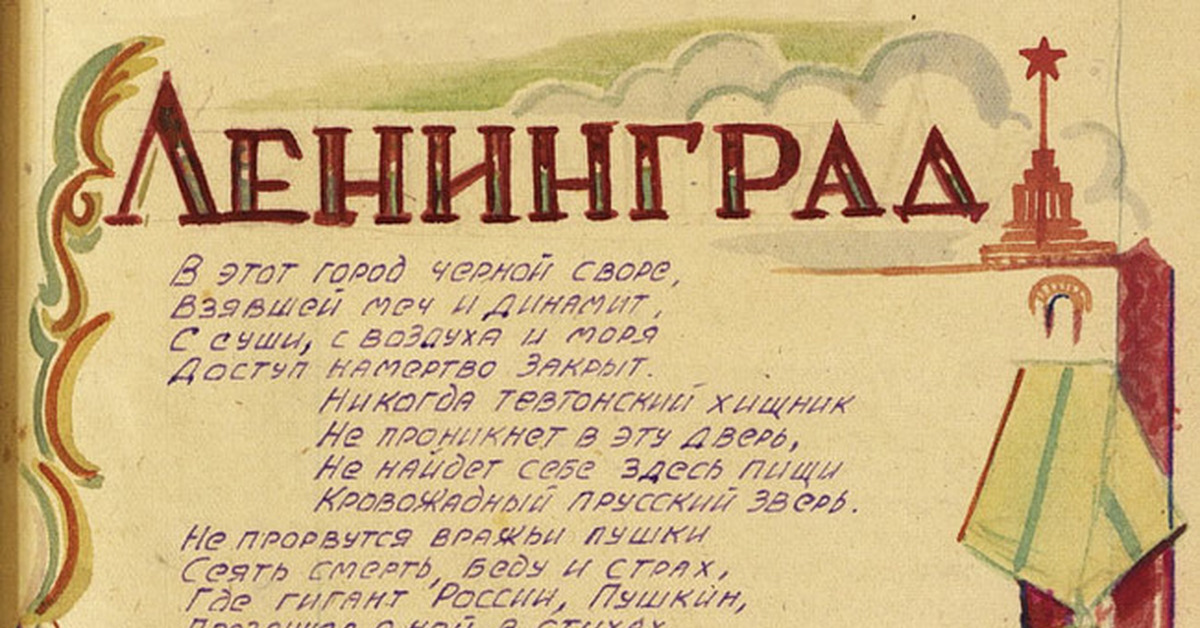 ЛЕНИНГРАД
В этот город черной своре,
Взявшей меч и динамит,
С суши, с воздуха и моря
Доступ намертво закрыт.
Никогда тевтонский хищник
Не проникнет в эту дверь,
Не найдет себе здесь пищи
Кровожадный прусский зверь.
Не прорвутся вражьи пушки
Сеять смерть, беду и страх,
Где гигант России, Пушкин,
в стихах